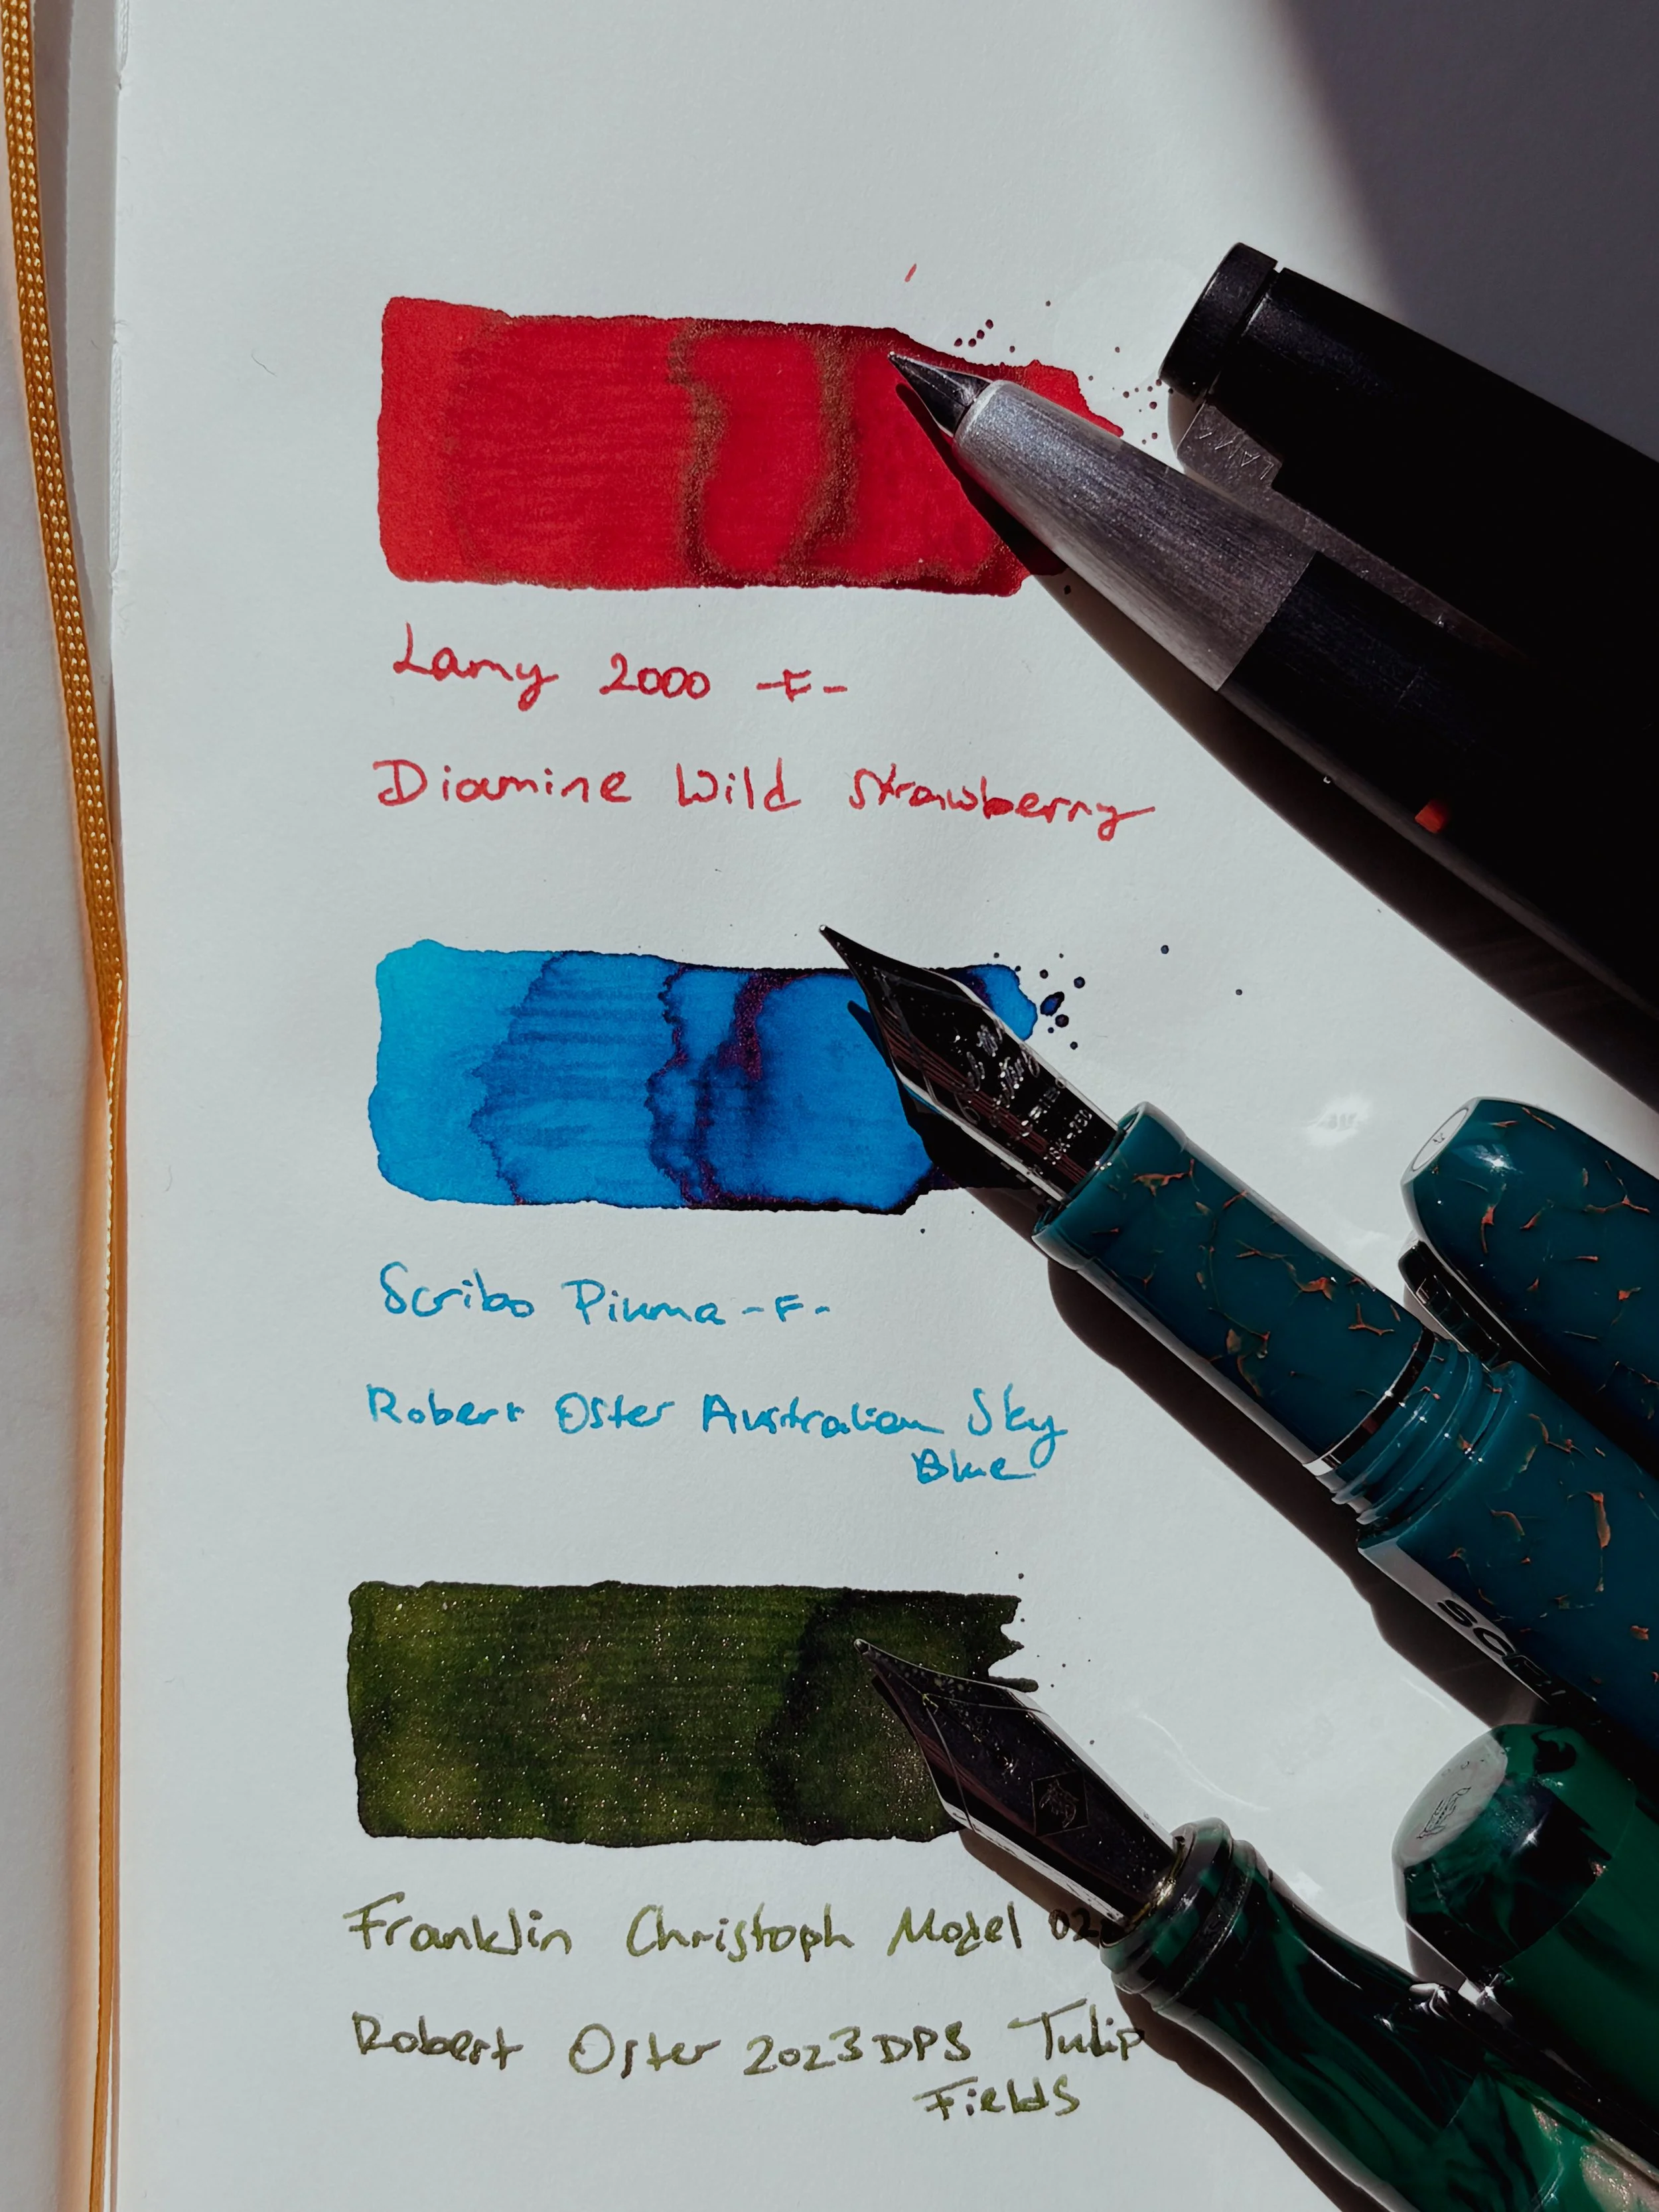 LAMY
Lamy 2000 -F-
Diamine Wild Strawberry
Scribo Piuma -F-
Robert Oster Australian Sky
Blue
Franklin Christoph Model 02
Robert Oster 2023 DPS Tulip
Fields